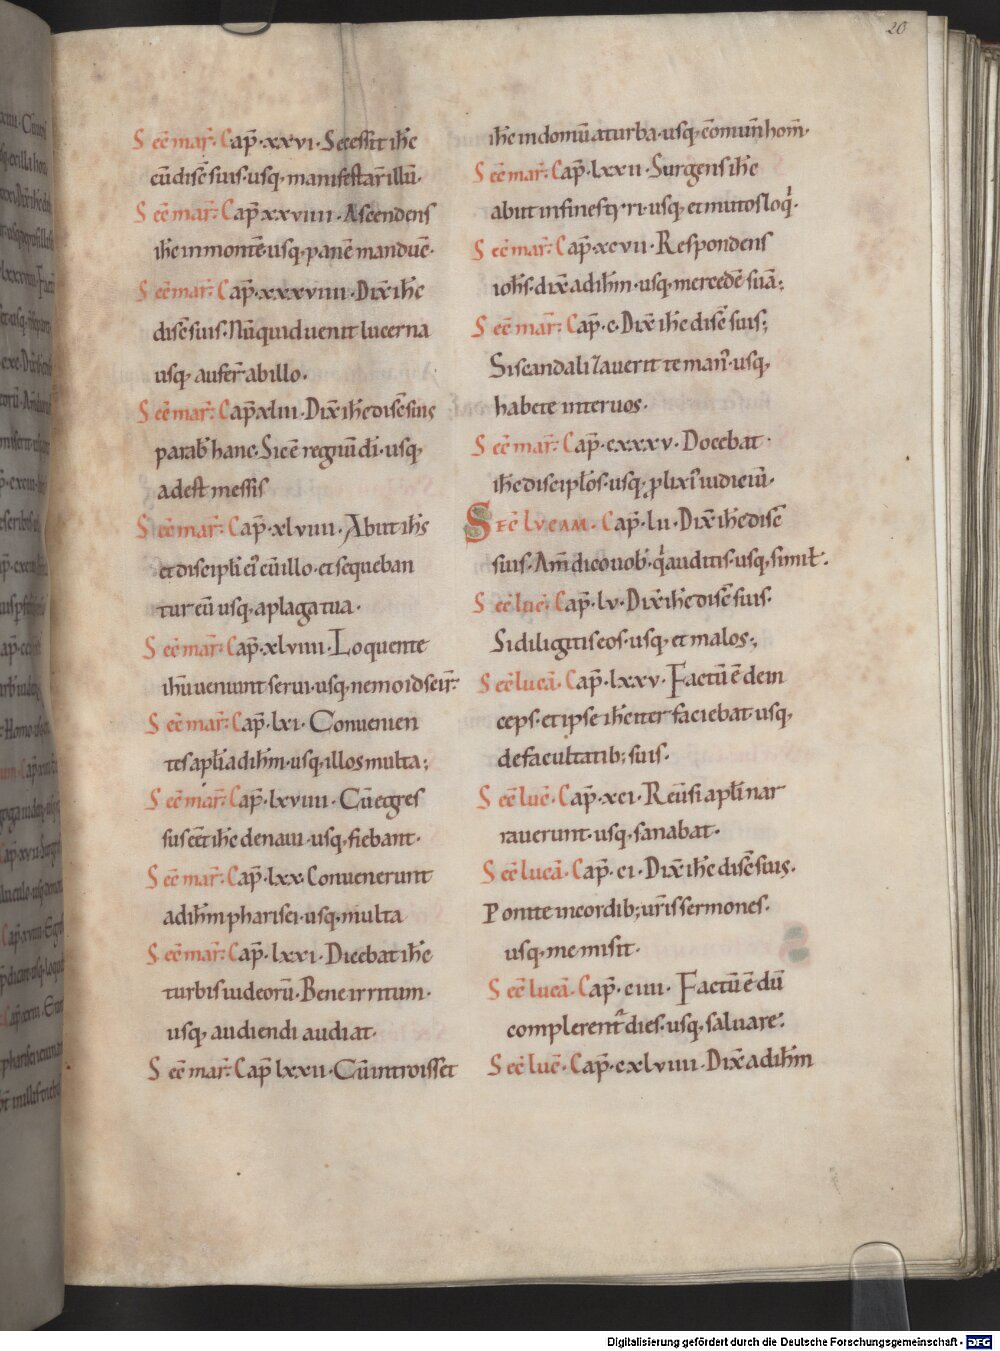 20
S ec̄ mar̄. Cap̄. xxvi. Secessit ih̄c
cū disc̄ suis. usq; manifestar̄ illū.
S ec̄ mar̄. Cap̄ xxviiii. Ascendens
ih̄c in monte. usq; panē manduc̄.
S ec̄ mar̄. Cap̄. xxxviiii. Dix̄ ih̄c
disc̄ suis. Nūquid uenit lucerna
usq; aufer̄ ab illo.
S ec̄ mar̄. Cap̄ xliii. Dix̄ ih̄c disc̄ suis
parab̄ hanc. Sic ē regnū dī. usq;
adest messis
S ec̄ mar̄. Cap̄. xlviii. Abiit ih̄s
et discipli ei cū illo. et sequeban
tur eū usq; a plaga tua.
S ec̄ mar̄. Cap̄. xlviiii. Loquente
ih̄u ueniunt serui. usq; nemo id scir̄.
S ec̄ mar̄. Cap̄. lxi. Conuenien
tes apl̄i ad ih̄m. usq; illos multa;
S ec̄ mar̄. Cap̄. lxviiii. Cū egres
sus eēt ih̄c de naui. usq; fiebant.
S ec̄ mar̄. Cap̄. lxx. Conuenerunt
ad ih̄m pharisei. usq; multa
S ec̄ mar̄. Cap̄. lxxi. Dicebat ih̄c
turbis iudeorū. Bene irritum.
usq; audiendi audiat.
S ec̄ mar̄. Cap̄ lxxii. Cū introisset
ih̄c in domū a turba. usq; cōmun̄ hom̄.
S ec̄ mar̄. Cap̄. lxxii. Surgens ih̄c
abiit in fines tyri. usq; et mutos loq̄.
S ec̄ mar̄. Cap̄. xcvii. Respondens
ioh̄s. dix̄ ad ih̄m. usq; mercedē suā;
S ec̄ mar̄. Cap̄. c. Dix̄ ih̄c disc̄ suis;
Si scandalizauerit te man̄. usq;
habete inter uos.
S ec̄ mar̄. Cap̄. cxxxv. Docebat
ih̄c discipl̄os. usq; plixi iudiciū.
Sec̄ lucam. Cap̄. lii. Dix̄ ih̄c disc̄
suis. Am̄ dico uob̄. q auditis. usq; simil̄.
S ec̄ luc̄. Cap̄. lv. Dix̄ ih̄c disc̄ suis.
Si diligitis eos. usq; et malos;
S ec̄ lucā. Cap̄. lxxv. Factū ē dein
ceps. et ipse ih̄c iter faciebat. usq;
de facultatib; suis.
S ec̄ luc̄. Cap̄. xci. Reūsi apl̄i nar
rauerunt. usq; sanabat.
S ec̄ lucā. Cap̄. ci. Dix̄ ih̄c disc̄ suis.
Ponite in cordib; ur̄is sermones.
usq; me misit.
S ec̄ lucā. Cap̄. ciiii. Factū ē dū
complerent dies. usq; saluare.
S ec̄ luc̄. Cap̄. cxlviiii. Dix̄ ad ih̄m
Digitalisierung gefördert durch die Deutsche Forschungsgemeinschaft - DFG